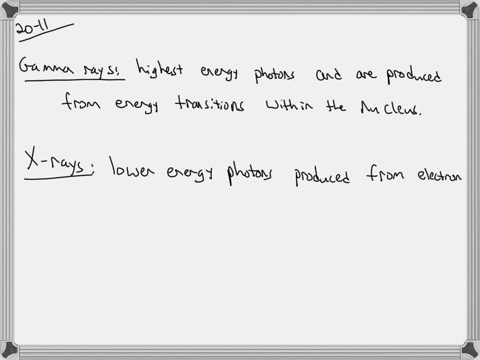 20-11
Gamma rays: highest energy photons and are produced
from energy transitions within the nucleus.
X-rays: lower energy photons produced from electron